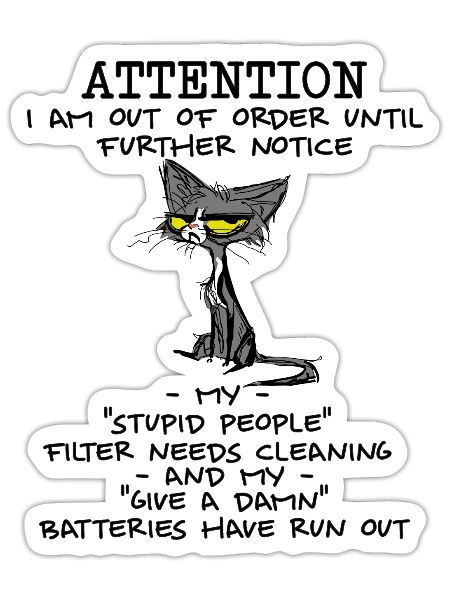 ATTENTION
I AM OUT OF ORDER UNTIL
FURTHER NOTICE
- MY -
"STUPID PEOPLE"
FILTER NEEDS CLEANING
- AND MY -
"GIVE A DAMN"
BATTERIES HAVE RUN OUT